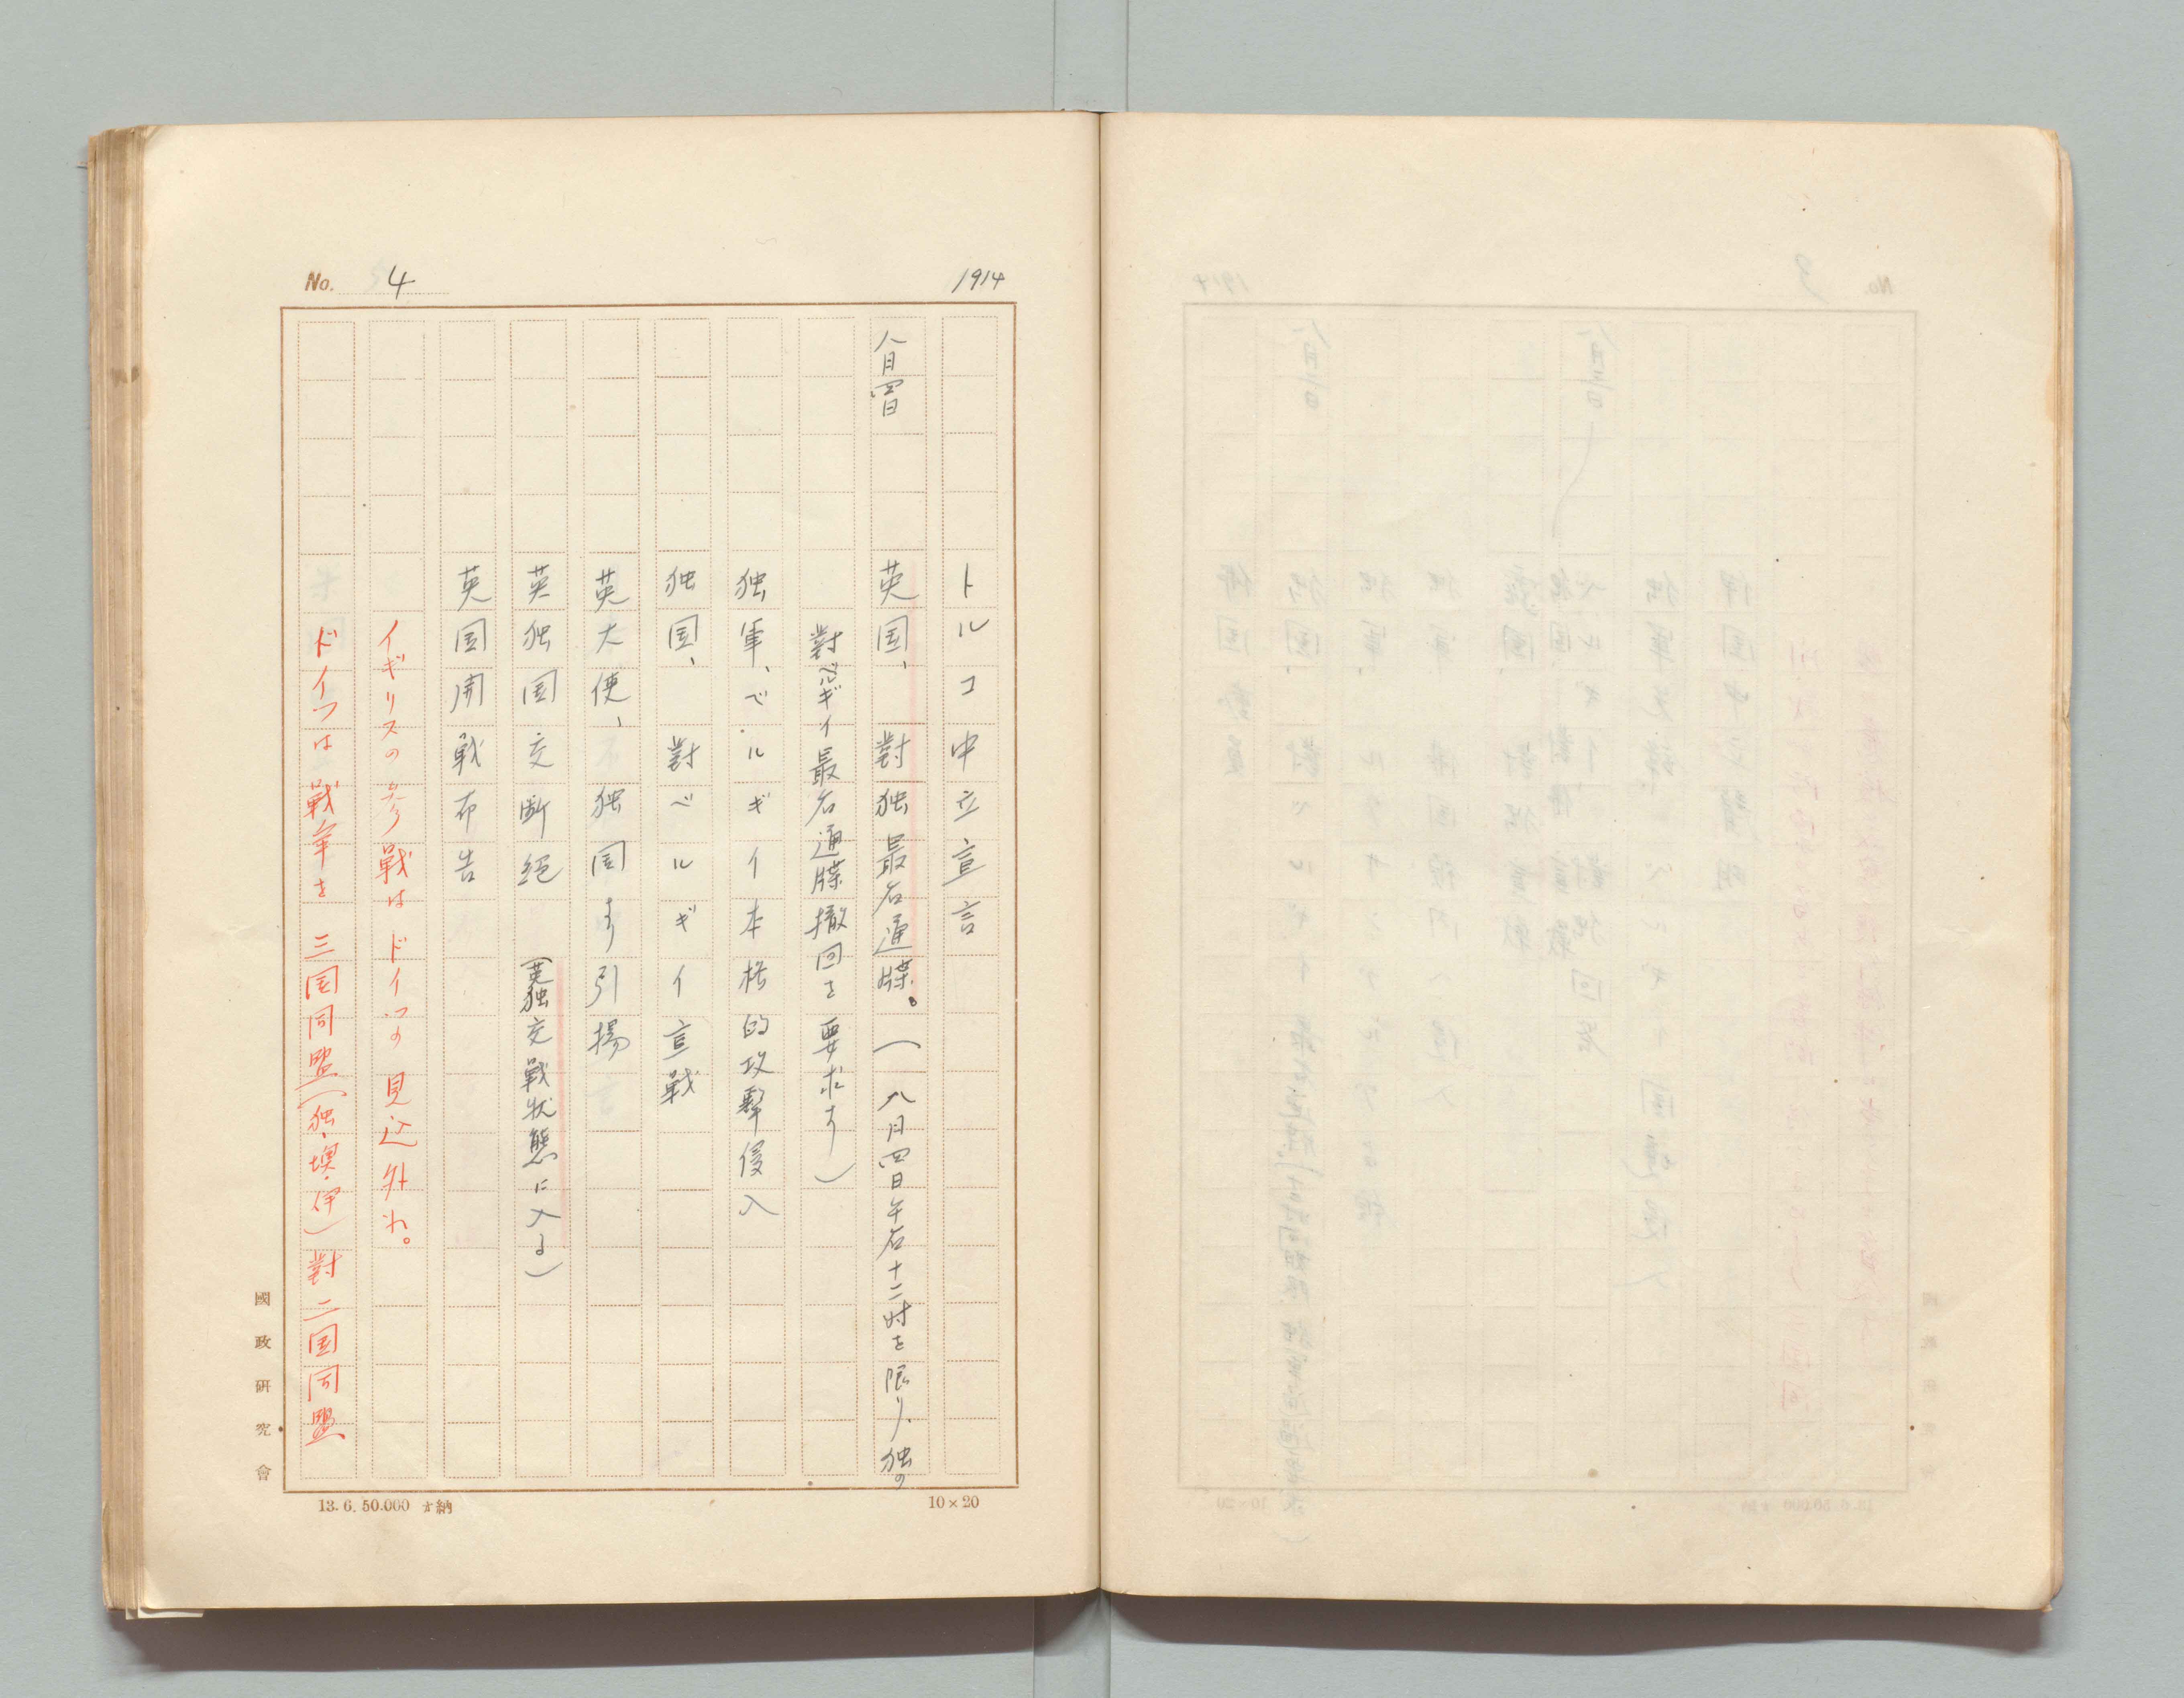 No. 4
1914
トルコ中立宣言
八月四日 英国、對独最后通牒。(八月四日午后十二時を限り、独の
對ベルギイ最后通牒撤回を要求す)
独軍、ベルギイ本格的攻撃侵入
独国、對ベルギイ宣戦
英大使、独国より引揚
英独国交断絶 (英独交戦状態に入る)
英国開戦布告
イギリスの参戦はドイツの見込外れ。
ドイツは戦争を三国同盟(独・墺・伊)對二国同盟
國政研究會
13. 6. 50.000 才納
10×20